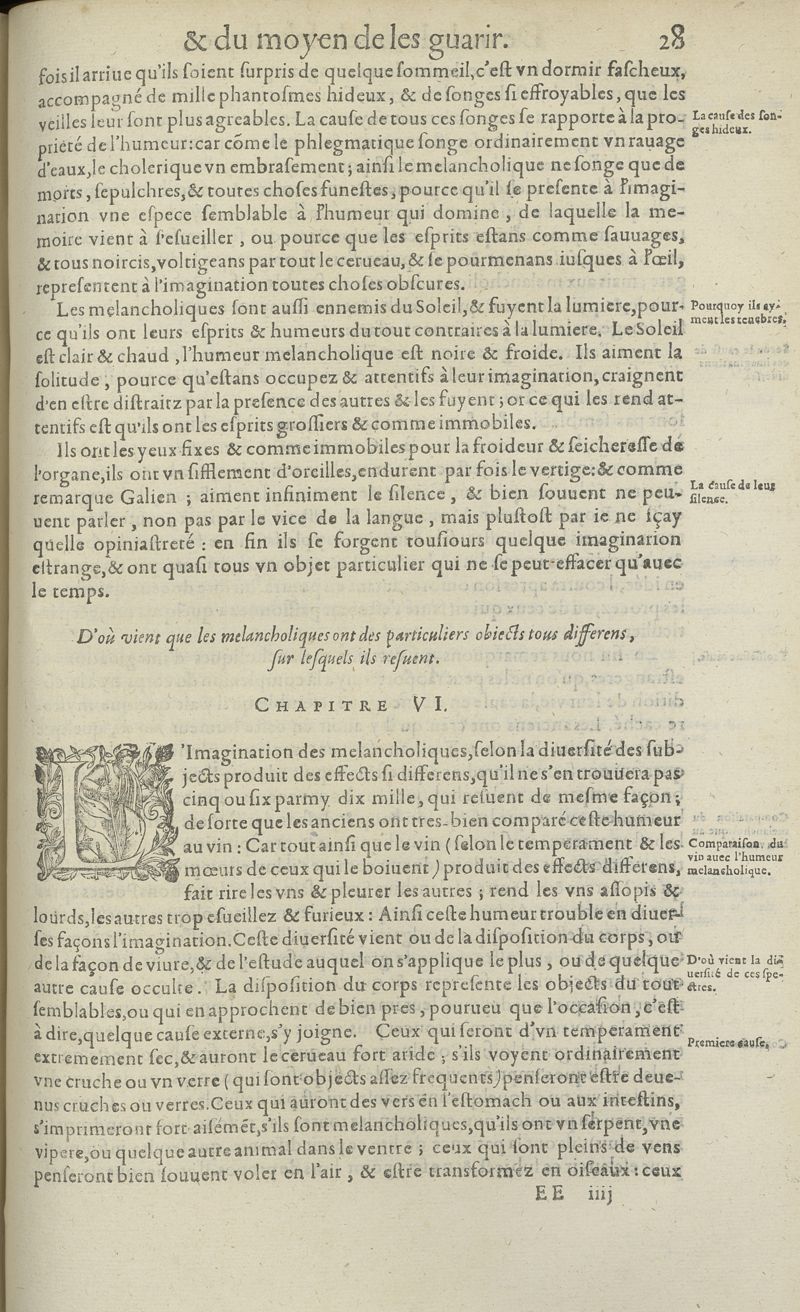 & du moyen de les guarir. 28
fois il arriue qu'ils soient surpris de quelque sommeil, c'est vn dormir fascheux,
accompagné de mille phantosmes hideux, & de songes si effroyables, que les
veilles leur sont plus agreables. La cause de tous ces songes se rapporte à la pro-
La cause des son-
ges hideux.
prieté de l'humeur: car cõme le phlegmatique songe ordinairement vn rauage
d'eaux, le cholerique vn embrasement; ainsi le melancholique ne songe que de
morts, sepulchres, & toutes choses funestes, pource qu'il se presente à l'imagi-
nation vne espece semblable à l'humeur qui domine, de laquelle la me-
moire vient à s'esueiller, ou pource que les esprits estans comme sauuages,
& tous noircis, voltigeans par tout le cerueau, & se pourmenans iusques à l'œil,
representent à l'imagination toutes choses obscures.
Les melancholiques sont aussi ennemis du Soleil, & fuyent la lumiere, pour-
Pourquoy ils ay-
ment les tenebres.
ce qu'ils ont leurs esprits & humeurs du tout contraires à la lumiere. Le Soleil
est clair & chaud, l'humeur melancholique est noire & froide. Ils aiment la
solitude, pource qu'estans occupez & attentifs à leur imagination, craignent
d'en estre distraitz par la presence des autres & les fuyent; or ce qui les rend at-
tentifs est qu'ils ont les esprits grossiers & comme immobiles.
Ils ont les yeux fixes & comme immobiles pour la froideur & seicheresse de
l'organe, ils ont vn sifflement d'oreilles, endurent par fois le vertige: & comme
remarque Galien; aiment infiniment le silence, & bien souuent ne peu-
La cause de leur
silence.
uent parler, non pas par le vice de la langue, mais plustost par ie ne sçay
quelle opiniastreté: en fin ils se forgent tousiours quelque imagination
estrange, & ont quasi tous vn objet particulier qui ne se peut effacer qu'auec
le temps.
D'où vient que les melancholiques ont des particuliers obiects tous differens,
sur lesquels ils resuent.
CHAPITRE VI.
L'Imagination des melancholiques, selon la diuersité des sub-
jects produit des effects si differens, qu'il ne s'en trouuera pas
cinq ou six parmy dix mille, qui resuent de mesme façon;
de sorte que les anciens ont tres-bien comparé ceste humeur
au vin: Car tout ainsi que le vin (selon le temperament & les
Comparaison du
vin auec l'humeur
melancholique.
mœurs de ceux qui le boiuent) produit des effects differens,
fait rire les vns & pleurer les autres; rend les vns assopis &
lourds, les autres trop esueillez & furieux: Ainsi ceste humeur trouble en diuer-
ses façons l'imagination. Ceste diuersité vient ou de la disposition du corps, ou
de la façon de viure, & de l'estude auquel on s'applique le plus, ou de quelque
D'où vient la di-
uersité de ces spe-
ctres.
autre cause occulte. La disposition du corps represente les objects du tout
semblables, ou qui en approchent de bien pres, pourueu que l'occasion, c'est
à dire, quelque cause externe, s'y joigne. Ceux qui seront d'vn temperament
Premiere cause.
extremement sec, & auront le cerueau fort aride; s'ils voyent ordinairement
vne cruche ou vn verre (qui sont objects assez frequents) penseront estre deue-
nus cruches ou verres. Ceux qui auront des vers en l'estomach ou aux intestins,
s'imprimeront fort aisémẽt, s'ils sont melancholiques, qu'ils ont vn serpent, vne
vipere, ou quelque autre animal dans le ventre; ceux qui sont pleins de vens
penseront bien souuent voler en l'air, & estre transformez en oiseaux: ceux
EE iiij